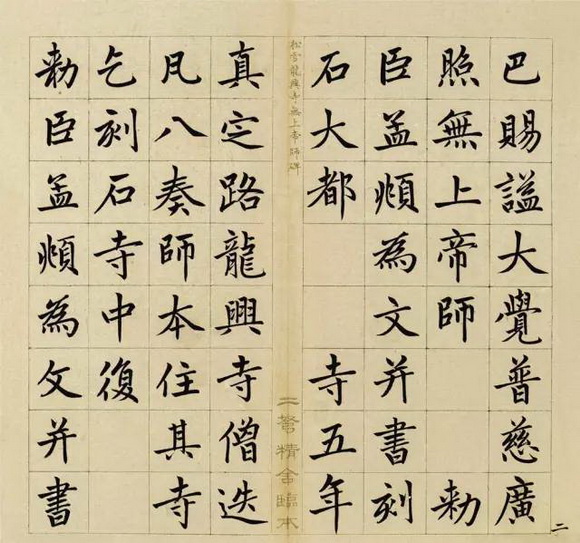 巴賜謚大覺普慈廣
照無上帝師 勅
臣孟頫為文并書刻
石大都 寺五年
松雪龍興寺無上帝師碑
二弩精舍臨本
真定路龍興寺僧迭
凡八奏師本住其寺
乞刻石寺中復
勅臣孟頫為文并書
二